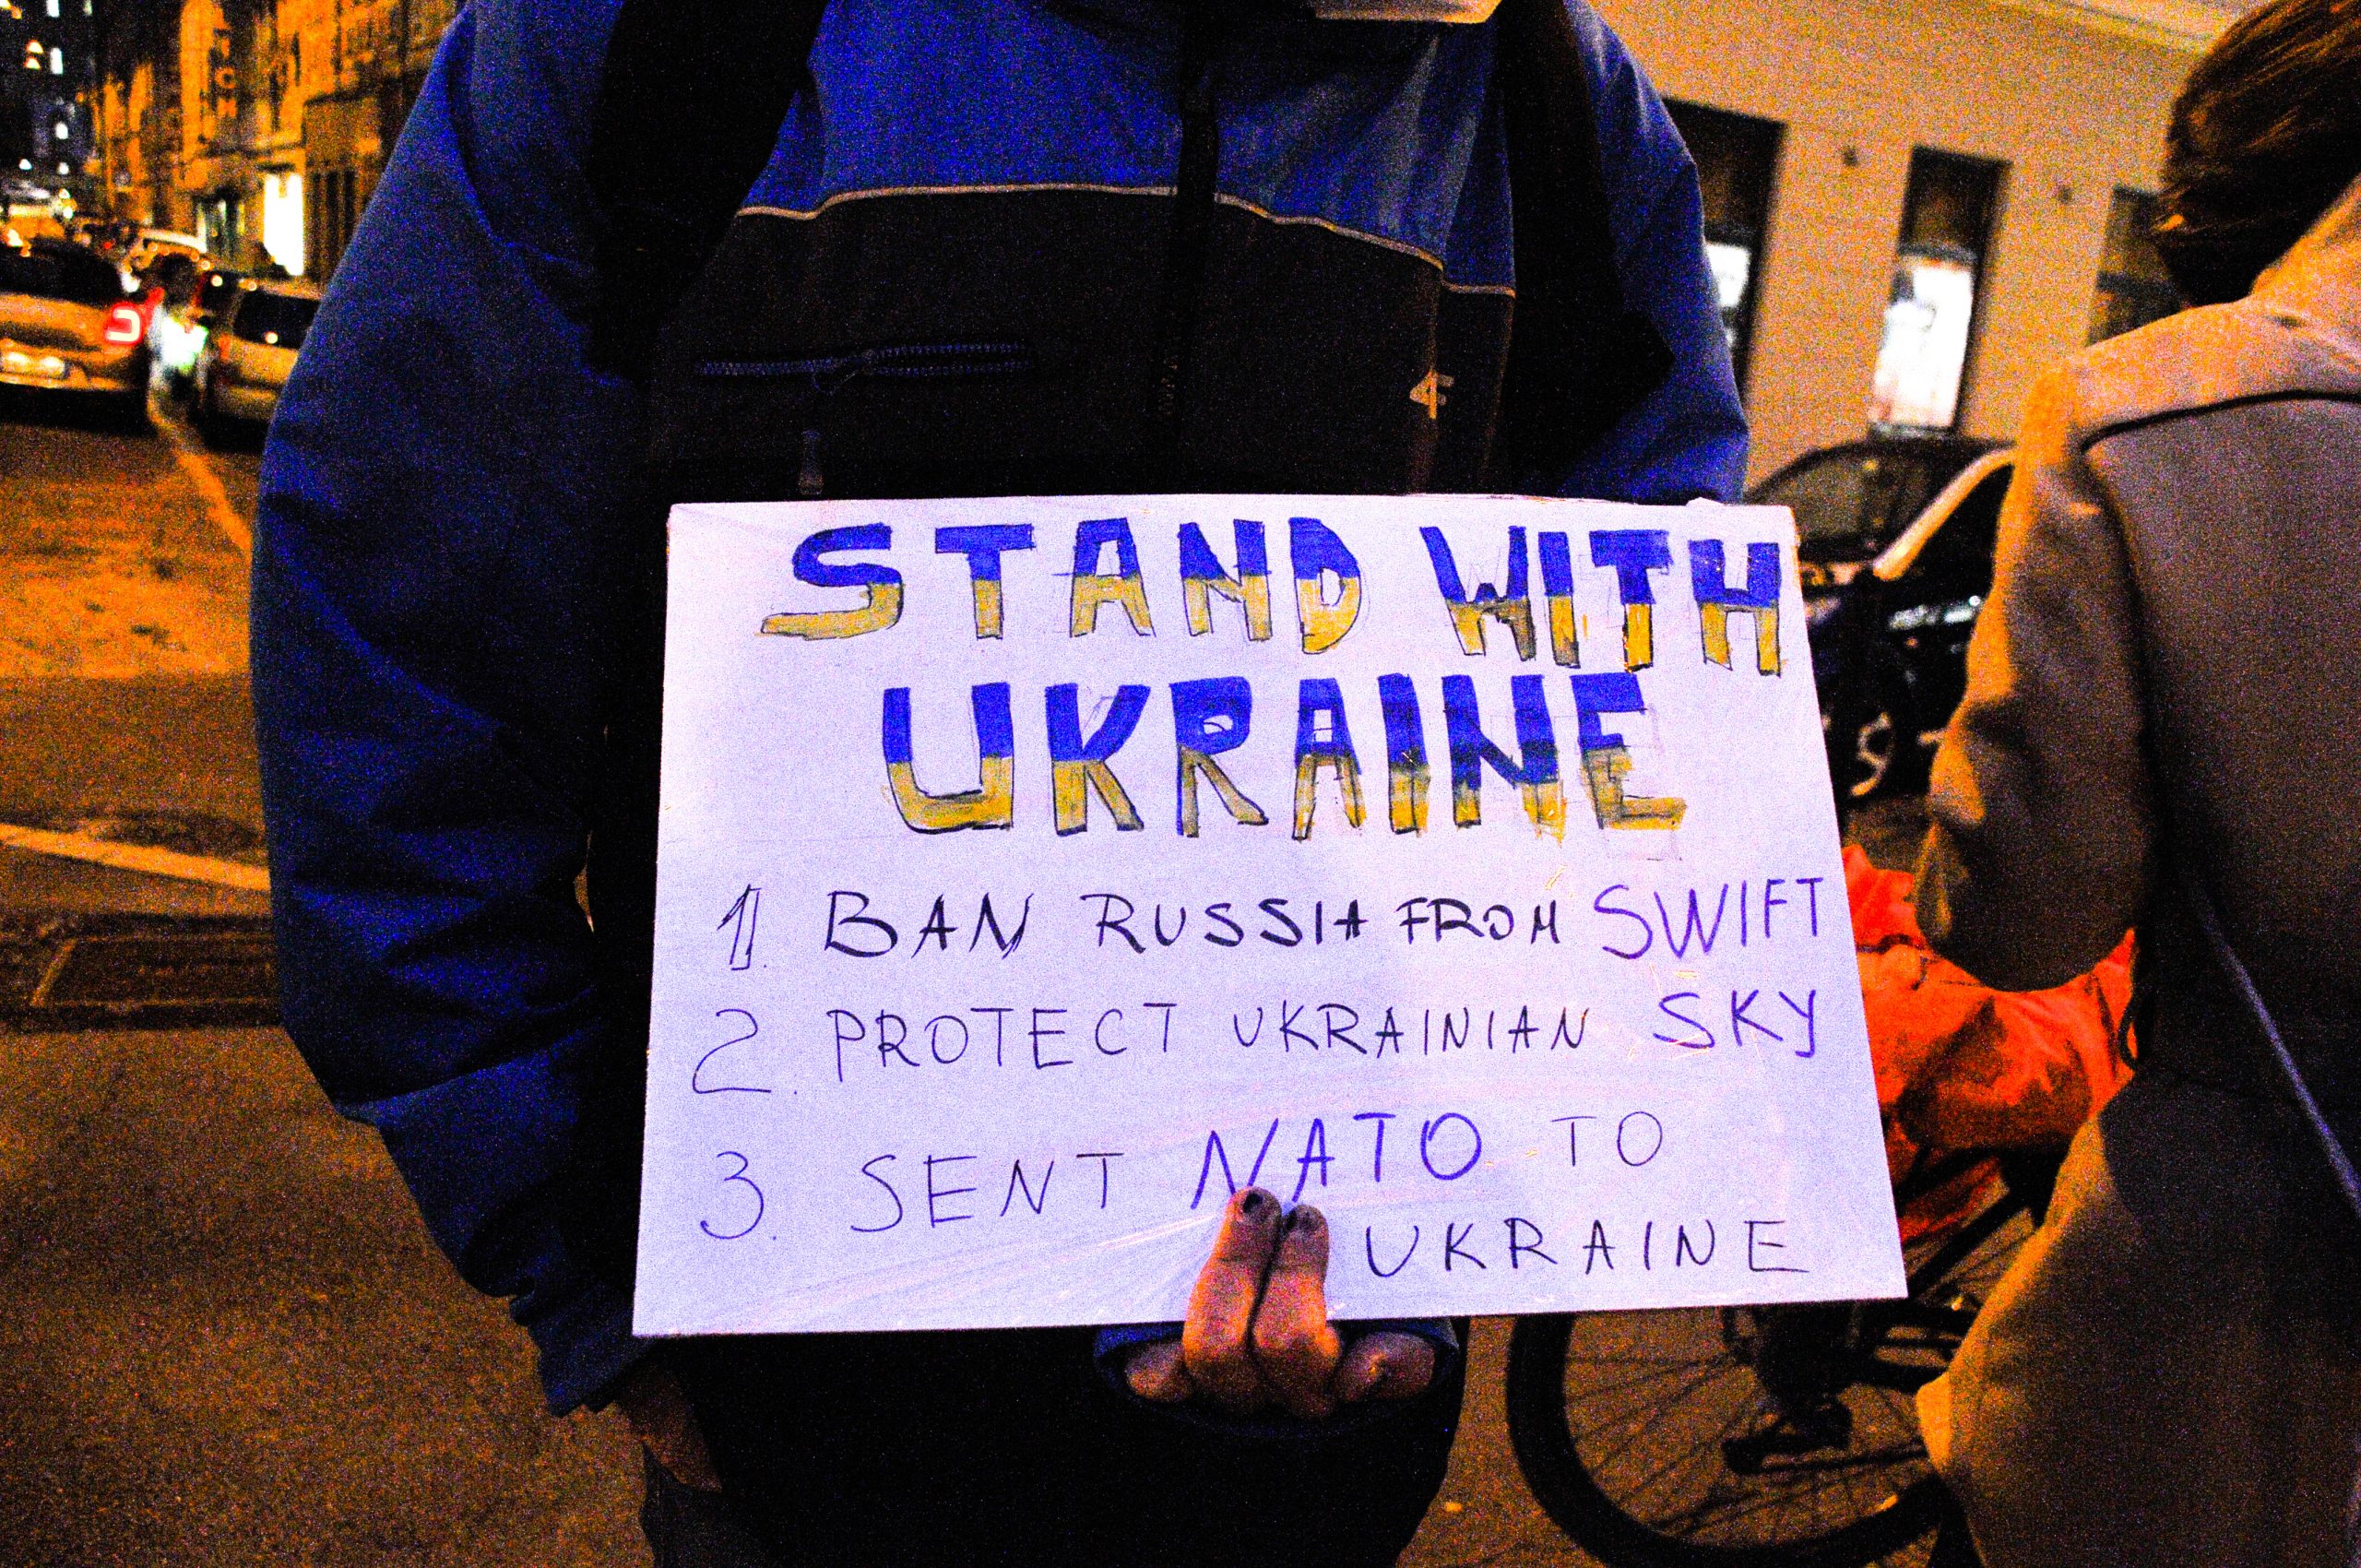 STAND WITH
UKRAINE
1. BAN RUSSIA FROM SWIFT
2. PROTECT UKRAINIAN SKY
3. SENT NATO TO
UKRAINE